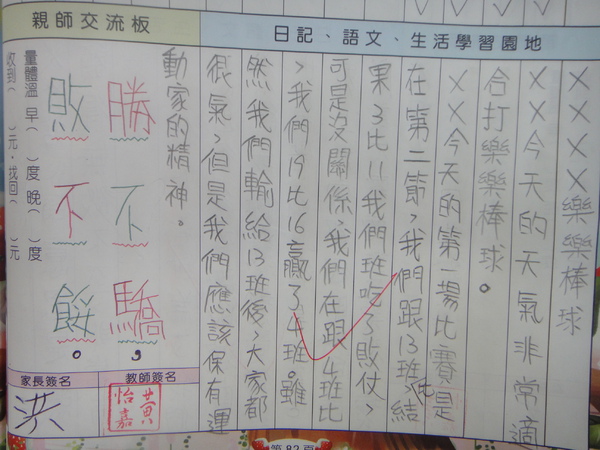 日記、語文、生活學習園地
××××樂樂棒球
××今天的天氣非常適
合打樂樂棒球。
××今天的第一場比賽是
在第二節,我們跟13班比,結
果3比11我們班吃了敗仗,
可是沒關係,我們在跟4班比
,我們19比16贏了4班。雖
然我們輸給13班後,大家都
很氣,但是我們應該保有運
動家的精神。
親師交流板
勝不驕,
敗不餒。
量體溫 早( )度 晚( )度
收到( )元,找回( )元
教師簽名
黃怡嘉
家長簽名
洪